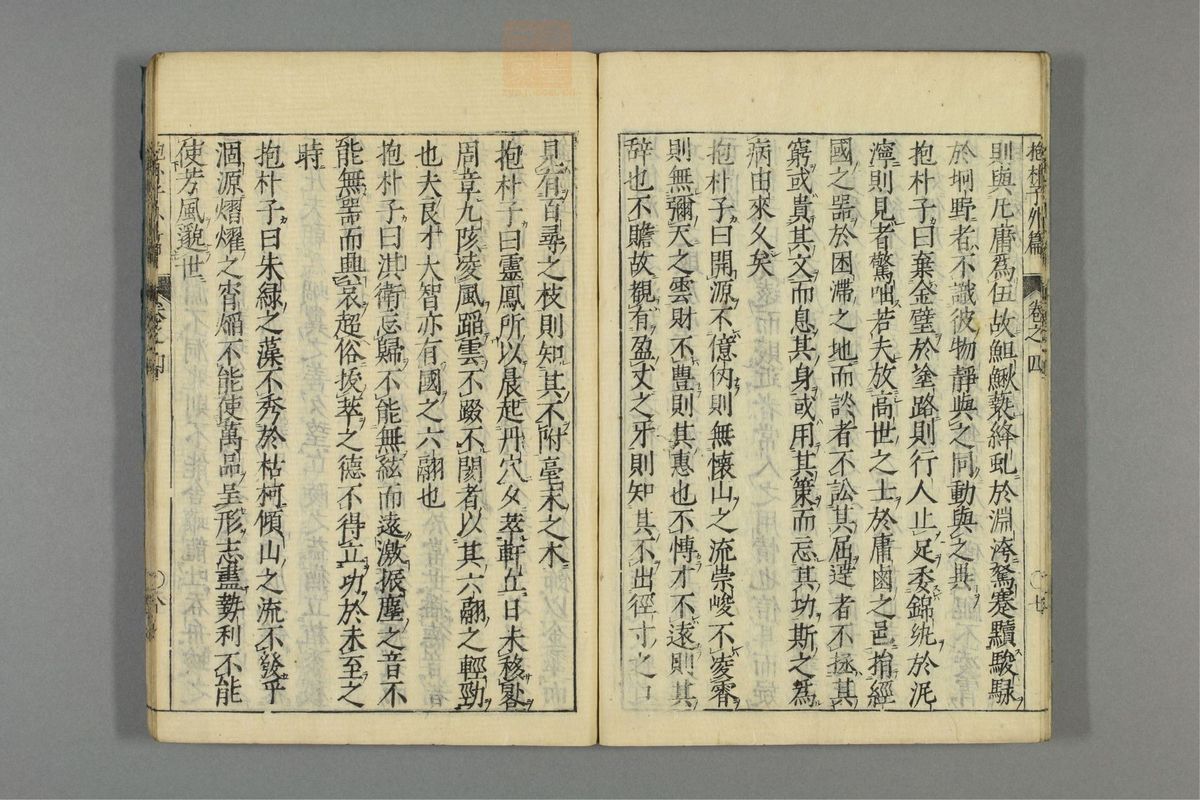 抱朴子外篇　卷之四　〇七
則與凡庸爲伍故鮑鰍藜絳虬於淵洿駑蹇黷駿騄
於坰野者不識彼物靜與之同動與之異
抱朴子曰棄金璧於塗路則行人止足委錦紈於泥
濘則見者驚咄若夫放高世之士於庸鹵之邑捐經
國之器於困滯之地而談者不訟其屈達者不拯其
窮或貴其文而息其身或用其策而忘其功斯之爲
病由來久矣
抱朴子曰開源不億仭則無懷山之流崇峻不凌霄
則無彌天之雲財不豊則其惠也不愽才不遠則其
辞也不贍故覩有盈丈之牙則知其不出徑寸之口
見有百尋之枝則知其不附毫末之木
抱朴子曰靈鳳所以晨起丹穴夕萃軒丘日未移晷
周章九陔凌風蹈雲不踐不閡者以其六翮之輕勁
也夫良才大智亦有國之六翮也
抱朴子曰淇衛忘歸不能無絃而遠激振塵之音不
能無器而興哀超俗拔萃之德不得立功於未至之
時
抱朴子曰朱緑之藻不秀於枯柯傾山之流不發乎
涸源熠燿之宵爓不能使萬品呈形志盡勢利不能
使芳風邈世